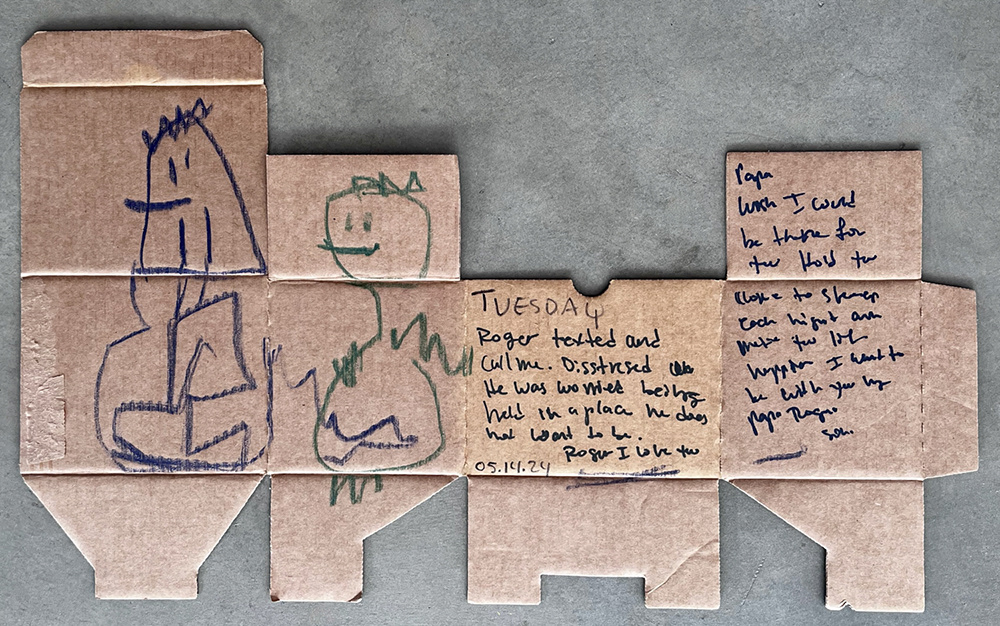 TUESDAY
Roger texted and
Call me. Disstresed
He was worried being
held in a place he does
not want to be.
Roger I love you
05.14.24
Papa
Wish I could
be there for
you Hold you
Close to
each night and
make you
I want to
be with you
Papa